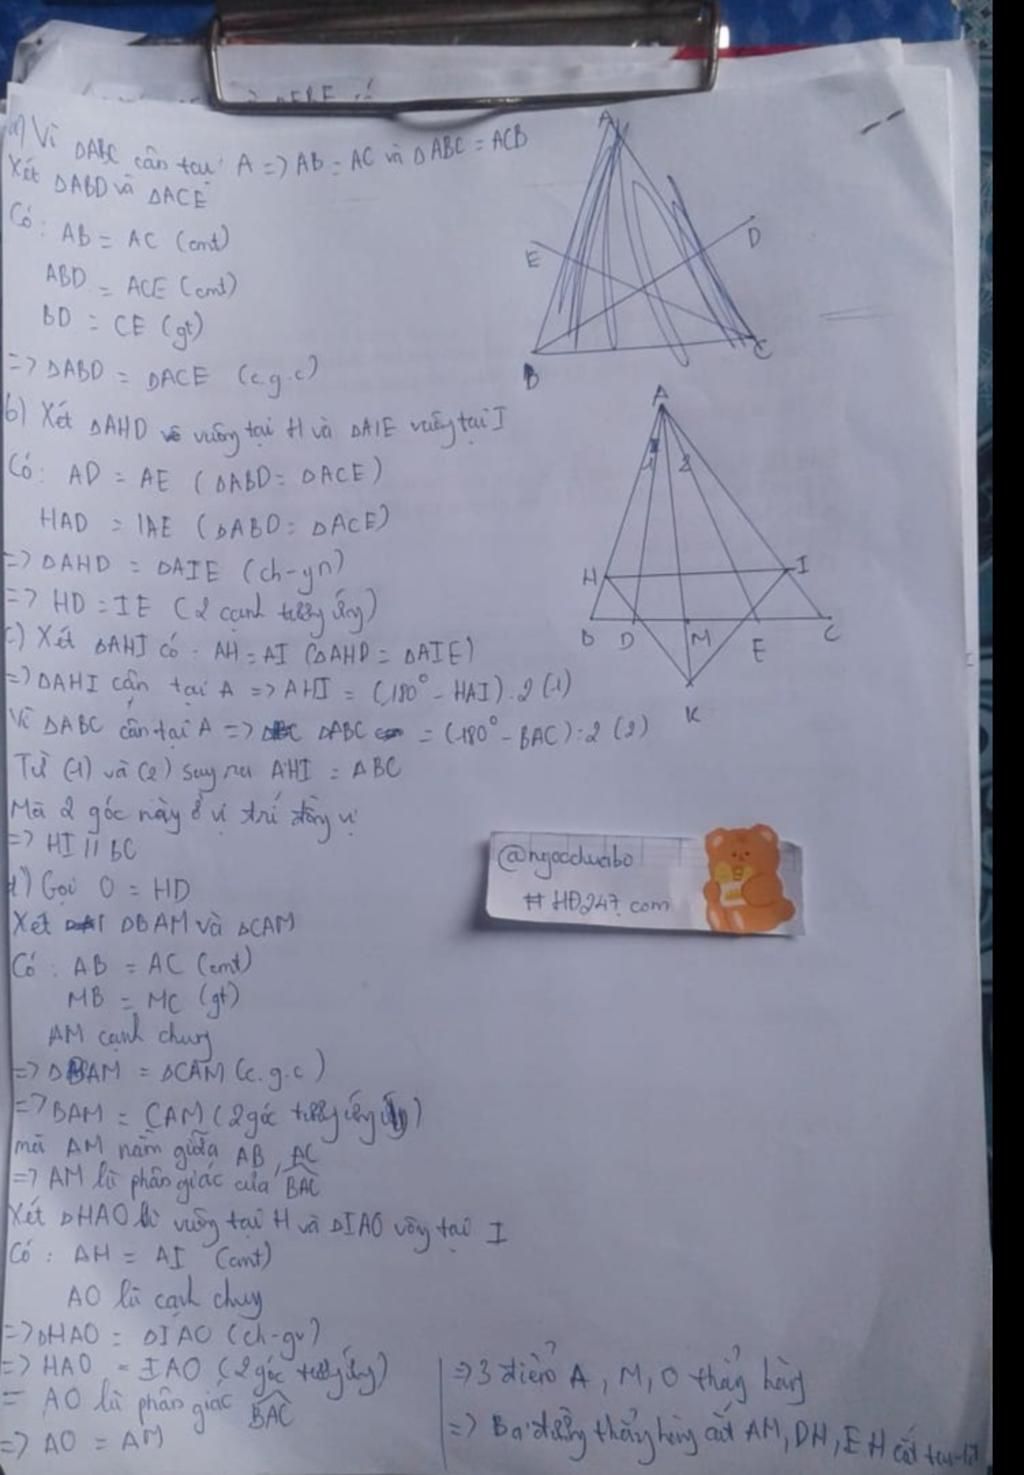 a) Vì ΔABC cân tại A => AB = AC và ABC = ACB
Xét ΔABD và ΔACE
Có: AB = AC (cmt)
ABD = ACE (cmt)
BD = CE (gt)
=> ΔABD = ΔACE (c.g.c)
b) Xét ΔAHD vuông tại H và ΔAIE vuông tại I
Có: AD = AE (ΔABD = ΔACE)
HAD = IAE (ΔABD = ΔACE)
=> ΔAHD = ΔAIE (ch-gn)
=> HD = IE (2 cạnh tương ứng)
c) Xét ΔAHI có: AH = AI (ΔAHD = ΔAIE)
=> ΔAHI cân tại A => AHI = (180° - HAI):2 (1)
Vì ΔABC cân tại A => ABC = (180° - BAC):2 (2)
Từ (1) và (2) suy ra AHI = ABC
Mà 2 góc này ở vị trí đồng vị
=> HI // BC
d) Gọi O = HD
Xét ΔBAM và ΔCAM
Có: AB = AC (cmt)
MB = MC (gt)
AM cạnh chung
=> ΔBAM = ΔCAM (c.g.c)
=> BAM = CAM (2 góc tương ứng)
mà AM nằm giữa AB, AC
=> AM là phân giác của BAC
Xét ΔHAO vuông tại H và ΔIAO vông tại I
Có: AH = AI (cmt)
AO là cạnh chung
=> ΔHAO = ΔIAO (ch-gv)
=> HAO = IAO (2 góc tương ứng)
= AO là phân giác BAC
=> AO = AM
=> 3 điểm A, M, O thẳng hàng
=> Ba đường thẳng AM, DH, EH cắt
A
E
D
B
C
A
1
2
H
I
B
D
M
E
C
K
@ngocdueibo
# HD247.com